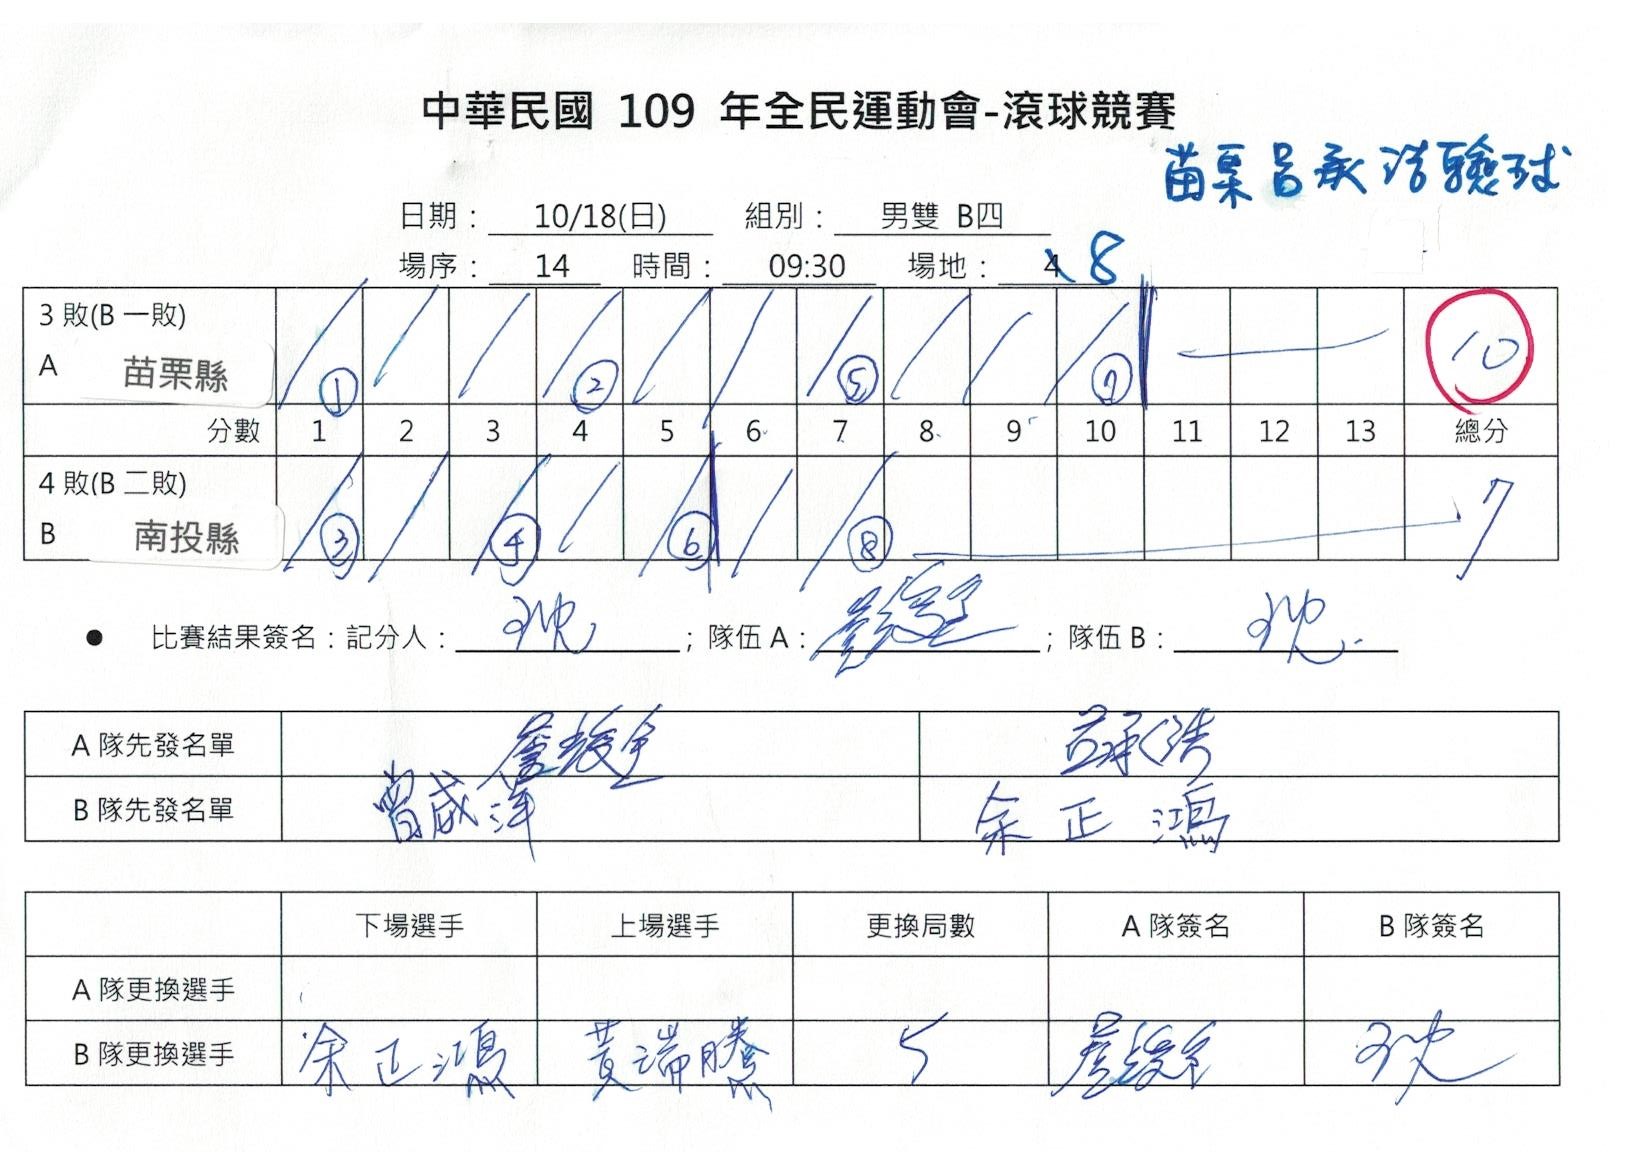 中華民國 109 年全民運動會-滾球競賽
苗栗呂承浩驗球
日期： 10/18(日) 組別： 男雙 B四
場序： 14 時間： 09:30 場地： 4 8
3 敗(B 一敗)
A 苗栗縣 ① ② ⑤ ⑦ 10
分數 1 2 3 4 5 6 7 8 9 10 11 12 13 總分
4 敗(B 二敗)
B 南投縣 ③ ④ ⑥ ⑧ 7
● 比賽結果簽名：記分人： ；隊伍 A： ；隊伍 B：
A 隊先發名單 呂承浩
B 隊先發名單 曾威洋 余正鴻
下場選手 上場選手 更換局數 A 隊簽名 B 隊簽名
A 隊更換選手
B 隊更換選手 余正鴻 黃瑞騰 5